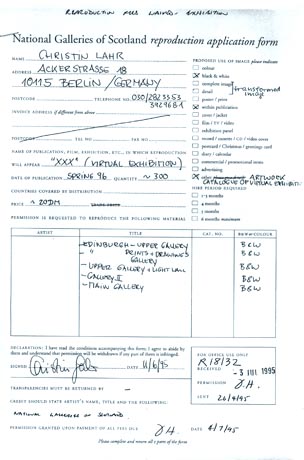 REPRODUCTION FEES WAIVED - EXHIBITION
National Galleries of Scotland reproduction application form
NAME CHRISTIN LAHR
ADDRESS ACKERSTRASSE 18
10115 BERLIN / GERMANY
POSTCODE TELEPHONE NO. 030/2823553
INVOICE ADDRESS if different from above
POSTCODE
TEL NO. FAX NO.
NAME OF PUBLICATION, FILM, EXHIBITION, ETC., IN WHICH REPRODUCTION
WILL APPEAR "XXX" (VIRTUAL EXHIBITION)
DATE OF PUBLICATION SPRING 96 QUANTITY ~ 300
COUNTRIES COVERED BY DISTRIBUTION
PRICE ~ 20DM
PROPOSED USE OF IMAGE please indicate
colour
X black & white
complete image
detail
transformed image
poster / print
X within publication
cover / jacket
film / TV / video
exhibition panel
record / cassette / CD / video cover
postcard / Christmas / greetings card
diary / calendar
commercial / promotional items
advertising
X other ARTWORK
CATALOGUE OF VIRTUAL EXHIBITION
HIRE PERIOD REQUIRED
1-3 months
4 months
5 months
6 months maximum
PERMISSION IS REQUESTED TO REPRODUCE THE FOLLOWING MATERIAL
ARTIST TITLE CAT. NO. B&W/COLOUR
- EDINBURGH - UPPER GALLERY B&W
- " PRINTS & DRAWINGS GALLERY B&W
- UPPER GALLERY + LIGHT B&W
- GALLERY II B&W
- MAIN GALLERY B&W
DECLARATION: I have read the conditions accompanying this form. I agree to abide by
them and understand that permission will be withdrawn if any part of them is infringed.
SIGNED Christin Lahr DATE 11/6/95
TRANSPARENCIES MUST BE RETURNED BY -
CREDIT SHOULD STATE ARTIST'S NAME, TITLE AND THE FOLLOWING:
NATIONAL GALLERIES OF SCOTLAND
PERMISSION GRANTED UPON PAYMENT OF ALL FEES DUE DATE 4/7/95
FOR OFFICE USE ONLY
R18/32
RECEIVED 1995
PERMISSION
SENT
Please complete and return all 2 parts of the form